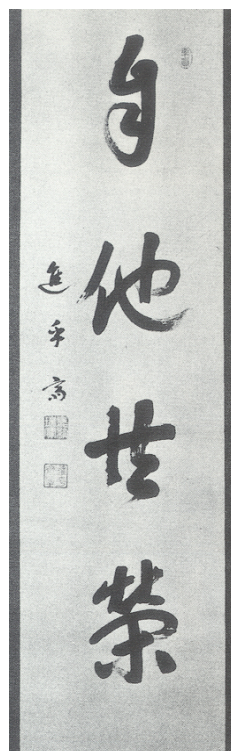 自他共榮
進乎齋